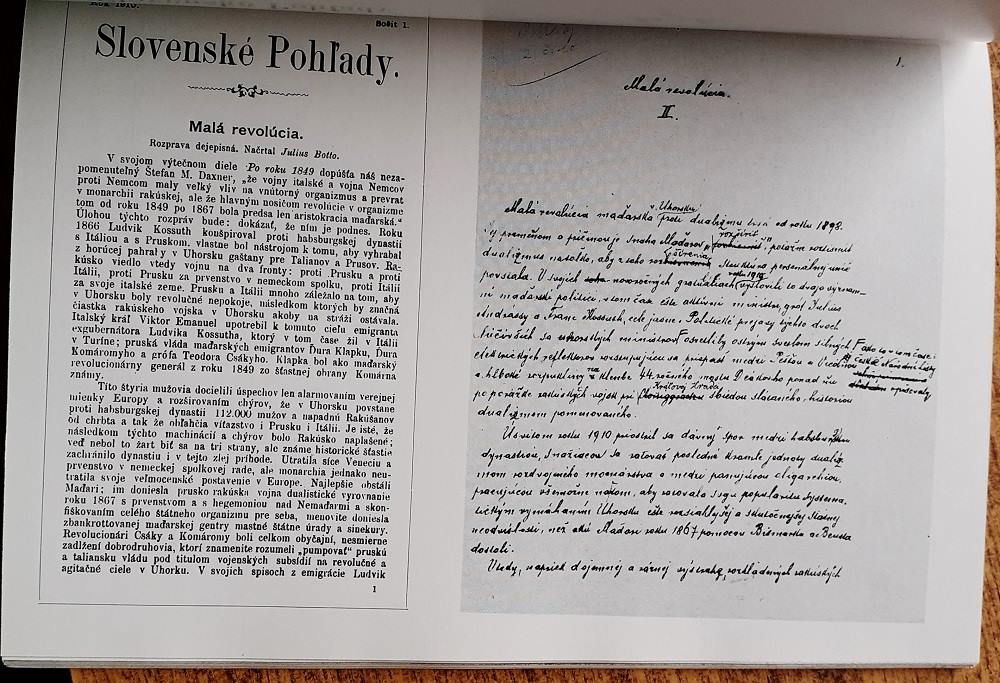 Rok 1910.
Sošit 1.
Slovenské Pohľady.
Malá revolúcia.
Rozprava dejepisná. Načrtal Julius Botto.
V svojom výtečnom diele Po roku 1849 dopúšťa náš neza-
pomenuteľný Štefan M. Daxner, „že vojny italské a vojna Nemcov
proti Nemcom maly veľký vliv na vnútorný organizmus a prevrat
v monarchii rakúskej, ale že hlavným nosičom revolúcie v organizme
tom od roku 1849 po 1867 bola predsa len aristokracia maďarská.“
Úlohou týchto rozpráv bude: dokázať, že ním je podnes. Roku
1866 Ludvik Kossuth konšpiroval proti habsburgskej dynastii
s Itáliou a s Pruskom, vlastne bol nástrojom k tomu, aby vyhrabal
z horúcej pahraby v Uhorsku gaštany pre Talianov a Prusov. Ra-
kúsko viedlo vtedy vojnu na dva fronty: proti Prusku a proti
Itálii, proti Prusku za prvenstvo v nemeckom spolku, proti Itálii
za svoje italské zeme. Prusku a Itálii mnoho záležalo na tom, aby
v Uhorsku boly revolučné nepokoje, následkom ktorých by značná
čiastka rakúskeho vojska v Uhorsku akoby na stráži ostávala.
Italský kráľ Viktor Emanuel upotrebil k tomuto cieľu emigranta
exgubernátora Ludvika Kossutha, ktorý v tom čase žil v Itálii
v Turíne; pruská vláda maďarských emigrantov Ďura Klapku, Ďura
Komáromyho a grófa Teodora Csákyho. Klapka bol ako maďarský
revolucionárny generál z roku 1849 zo šťastnej obrany Komárna
známy.
Títo štyria mužovia docielili úspechov len alarmovaním verejnej
mienky Europy a rozširovaním chýrov, že v Uhorsku povstane
proti habsburgskej dynastii 112.000 mužov a napadnú Rakúšanov
od chrbta a tak že obľahčia víťazstvo i Prusku i Itálii. Je isté, že
následkom týchto machinácií a chýrov bolo Rakúsko naplašené;
veď nebol to žart biť sa na tri strany, ale známe historické šťastie
zachránilo dynastiu i v tejto zlej príhode. Utratila síce Veneciu a
prvenstvo v nemeckej spolkovej rade, ale monarchia jednako neu-
tratila svoje veľmocenské postavenie v Europe. Najlepšie obstáli
Maďari; im doniesla prusko rakúska vojna dualistické vyrovnanie
roku 1867 s prvenstvom a s hegemoniou nad Nemaďarmi a skon-
fiškovaním celého štátneho organizmu pre seba, menovite doniesla
zbankrottovanej maďarskej gentry mastné štátne úrady a sinekury.
Revolucionári Csáky a Komáromy boli celkom obyčajní, nesmierne
zadlžení dobrodruhovia, ktorí znamenite rozumeli „pumpovať“ pruskú
a taliansku vládu pod titulom vojenských subsídií na revolučné a
agitačné ciele v Uhorku. V svojich spisoch z emigrácie Ludvik
1
1.
Malá revolúcia.
II.
Uhorsku
Malá revolúcia maďarská proti dualizmu trvá od roku 1898.
rozšíriť
a pričinuje snaha Maďarov
dualizmus natoľko, aby z neho personálna unia
roku 1910
povstala. V svojich novoročných gratuláciach vyslovili to dvaja význam-
ní maďarskí politici, v tom čase ešte aktívni ministri, gróf Julius
Andrassy a Franc Kossuth, celé jasne. Politické prejavy týchto dvoch
ministrov osvetlily ostrým svetlom silných
elektrických reflektorov rozstupujúcu sa priepasť medzi Peštou a Viedňou
a hlboké rozpukliny na klenbe 44. ročného mostu Deákovho ponad
Kráľovej Hradci
po porážke rakúskych vojsk pri
dualizmom pomenovaného.
Úsvitom roku 1910 priostril sa dávny spor medzi habsburskou
dynastiou, snažiacou sa zachovať posledné kramle jednoty dualiz-
mom rozdvojeného mocnárstva a medzi panujúcou oligarchiou,
pracujúcou všemožne na tom, aby zachovala svoju popularitu systema-
tickým vymáhaním Uhorsku ešte rozsiahlejšej a skutočnejšej štátnej
neodvislosti, než akú Maďari roku 1867 pomocou Bismarcka a Beusta
dostali.
Vtedy, napriek dojemnej a vážnej výstrahe, rakúskych